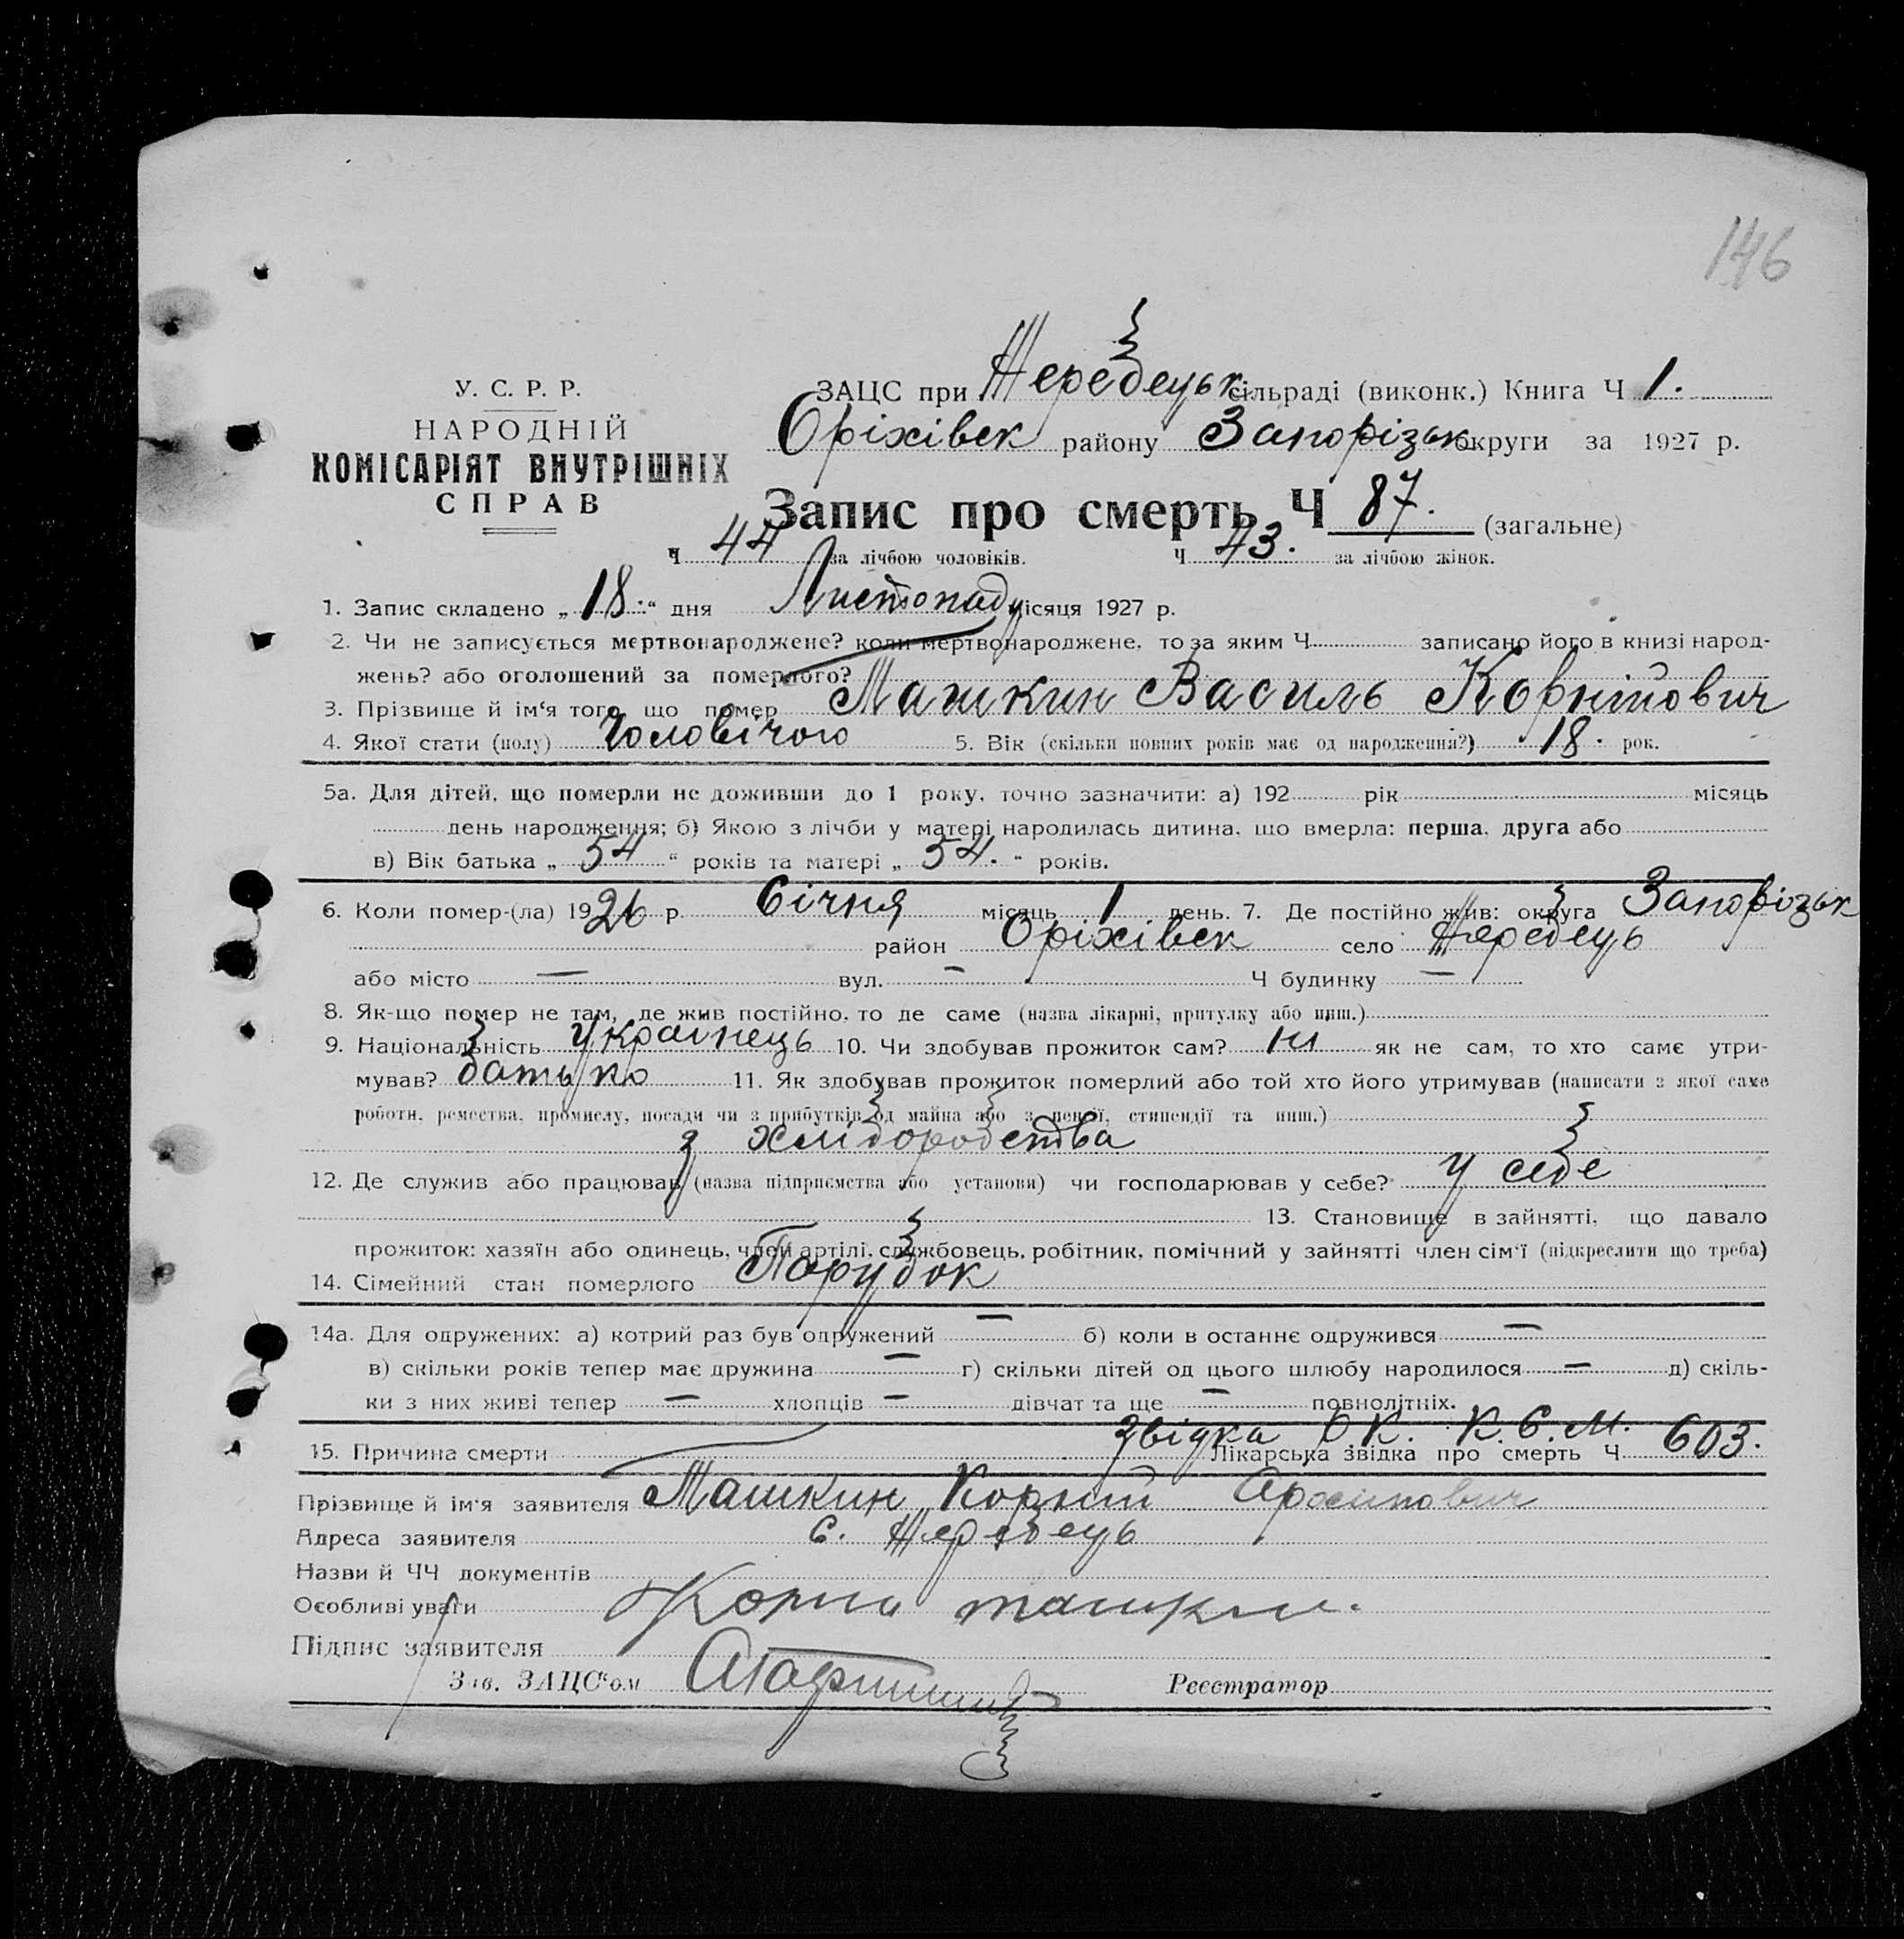 146
У. С. Р. Р.
НАРОДНІЙ
КОМІСАРІЯТ ВНУТРІШНІХ
СПРАВ
ЗАЦС при Жеребецьк сільраді (виконк.) Книга Ч 1.
Оріхівск району Запорізьк округи за 1927 р.
Запис про смерть Ч 87. (загальне)
Ч 44 за лічбою чоловіків. Ч 43. за лічбою жінок.
1. Запис складено „ 18. “ дня Листопаду місяця 1927 р.
2. Чи не записується мертвонароджене? коли мертвонароджене, то за яким Ч записано його в книзі народ-
жень? або оголошений за померлого?
3. Прізвище й ім'я того, що помер Машкин Василь Корнійович
4. Якої стати (полу) Чоловічою 5. Вік (скільки повних років має од народження?) 18. рок.
5а. Для дітей, що померли не доживши до 1 року, точно зазначити: а) 192 рік місяць
день народження; б) Якою з лічби у матері народилась дитина, що вмерла: перша, друга або
в) Вік батька „ 54 “ років та матері „ 54. “ років.
6. Коли помер-(ла) 1926 р. Січня місяць 1 день. 7. Де постійно жив: округа Запорізьк
район Оріхівск село Жеребець
або місто — вул. — Ч будинку —
8. Як-що помер не там, де жив постійно, то де саме (назва лікарні, притулку або инш.)
9. Національність Українець 10. Чи здобував прожиток сам? ні як не сам, то хто саме утри-
мував? батько 11. Як здобував прожиток померлий або той хто його утримував (написати з якої саме
роботи, ремества, промислу, посади чи з прибутків од майна або з пенсії, стипендії та инш.)
з хліборобства
12. Де служив або працював (назва підприємства або установи) чи господарював у себе? у себе
13. Становище в зайнятті, що давало
прожиток: хазяїн або одинець, член артілі, службовець, робітник, помічний у зайнятті член сім'ї (підкреслити що треба)
14. Сімейний стан померлого Парубок
14а. Для одружених: а) котрий раз був одружений — б) коли в останнє одружився —
в) скільки років тепер має дружина — г) скільки дітей од цього шлюбу народилося — д) скіль-
ки з них живі тепер — хлопців — дівчат та ще — повнолітніх.
15. Причина смерти звідка К. С. М. Лікарська звідка про смерть Ч 603.
Прізвище й ім'я заявителя Машкин Корній
Адреса заявителя с. Жеребець
Назви й ЧЧ документів
Особливі уваги Корни машкин.
Підпис заявителя
Зав. ЗАЦС'ом Реєстратор